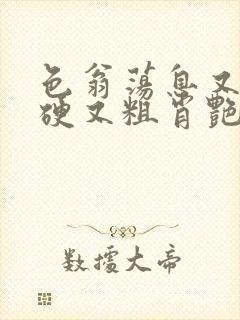 色翁荡息又
硬又粗肖艳
数據大帝